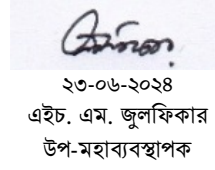 ২৩-০৬-২০২৪
এইচ. এম. জুলফিকার
উপ-মহাব্যবস্থাপক